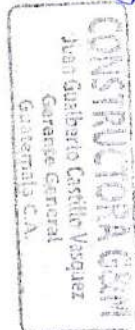 CONSTRUCTORA G&M
Juan Gualberto Castillo Vasquez
Gerente General
Guatemala, C.A.